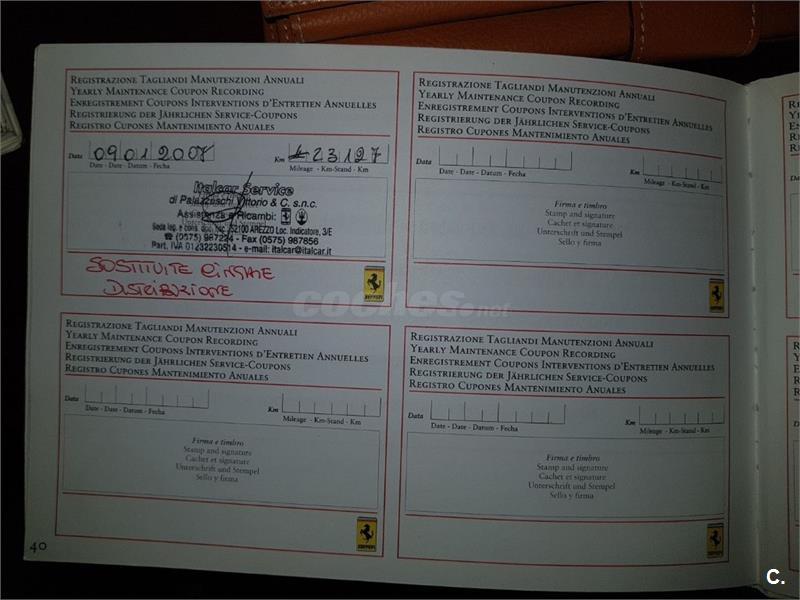 REGISTRAZIONE TAGLIANDI MANUTENZIONI ANNUALI
YEARLY MAINTENANCE COUPON RECORDING
ENREGISTREMENT COUPONS INTERVENTIONS D'ENTRETIEN ANNUELLES
REGISTRIERUNG DER JÄHRLICHEN SERVICE-COUPONS
REGISTRO CUPONES MANTENIMIENTO ANUALES
Data 09012007 Km 23127
Date - Date - Datum - Fecha Mileage - Km-Stand - Km
Italcar Service
di Palazzeschi Vittorio & C. s.n.c.
Assistenza e Ricambi:
52100 AREZZO Loc. Indicatore, 3/E
(0575) 987224 - Fax (0575) 987856
Part. IVA 01232230514 - e-mail: italcar@italcar.it
SOSTITUITE CINGHIE
DISTRIBUZIONE
REGISTRAZIONE TAGLIANDI MANUTENZIONI ANNUALI
YEARLY MAINTENANCE COUPON RECORDING
ENREGISTREMENT COUPONS INTERVENTIONS D'ENTRETIEN ANNUELLES
REGISTRIERUNG DER JÄHRLICHEN SERVICE-COUPONS
REGISTRO CUPONES MANTENIMIENTO ANUALES
Data Km
Date - Date - Datum - Fecha Mileage - Km-Stand - Km
Firma e timbro
Stamp and signature
Cachet et signature
Unterschrift und Stempel
Sello y firma
coches.net
REGISTRAZIONE TAGLIANDI MANUTENZIONI ANNUALI
YEARLY MAINTENANCE COUPON RECORDING
ENREGISTREMENT COUPONS INTERVENTIONS D'ENTRETIEN ANNUELLES
REGISTRIERUNG DER JÄHRLICHEN SERVICE-COUPONS
REGISTRO CUPONES MANTENIMIENTO ANUALES
Data Km
Date - Date - Datum - Fecha Mileage - Km-Stand - Km
Firma e timbro
Stamp and signature
Cachet et signature
Unterschrift und Stempel
Sello y firma
REGISTRAZIONE TAGLIANDI MANUTENZIONI ANNUALI
YEARLY MAINTENANCE COUPON RECORDING
ENREGISTREMENT COUPONS INTERVENTIONS D'ENTRETIEN ANNUELLES
REGISTRIERUNG DER JÄHRLICHEN SERVICE-COUPONS
REGISTRO CUPONES MANTENIMIENTO ANUALES
Data Km
Date - Date - Datum - Fecha Mileage - Km-Stand - Km
Firma e timbro
Stamp and signature
Cachet et signature
Unterschrift und Stempel
Sello y firma
40
C.